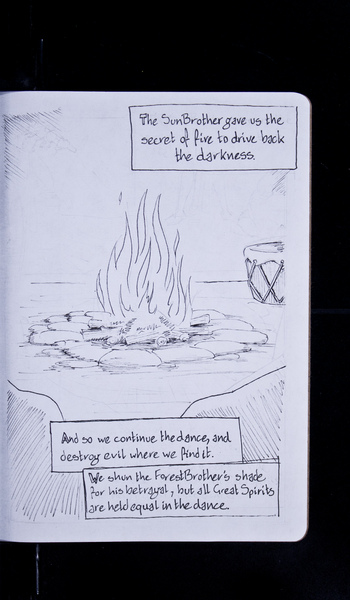 The SunBrother gave us the
secret of fire to drive back
the darkness.
And so we continue the dance, and
destroy evil where we find it.
We shun the ForestBrother's shade
for his betrayal, but all Great Spirits
are held equal in the dance.